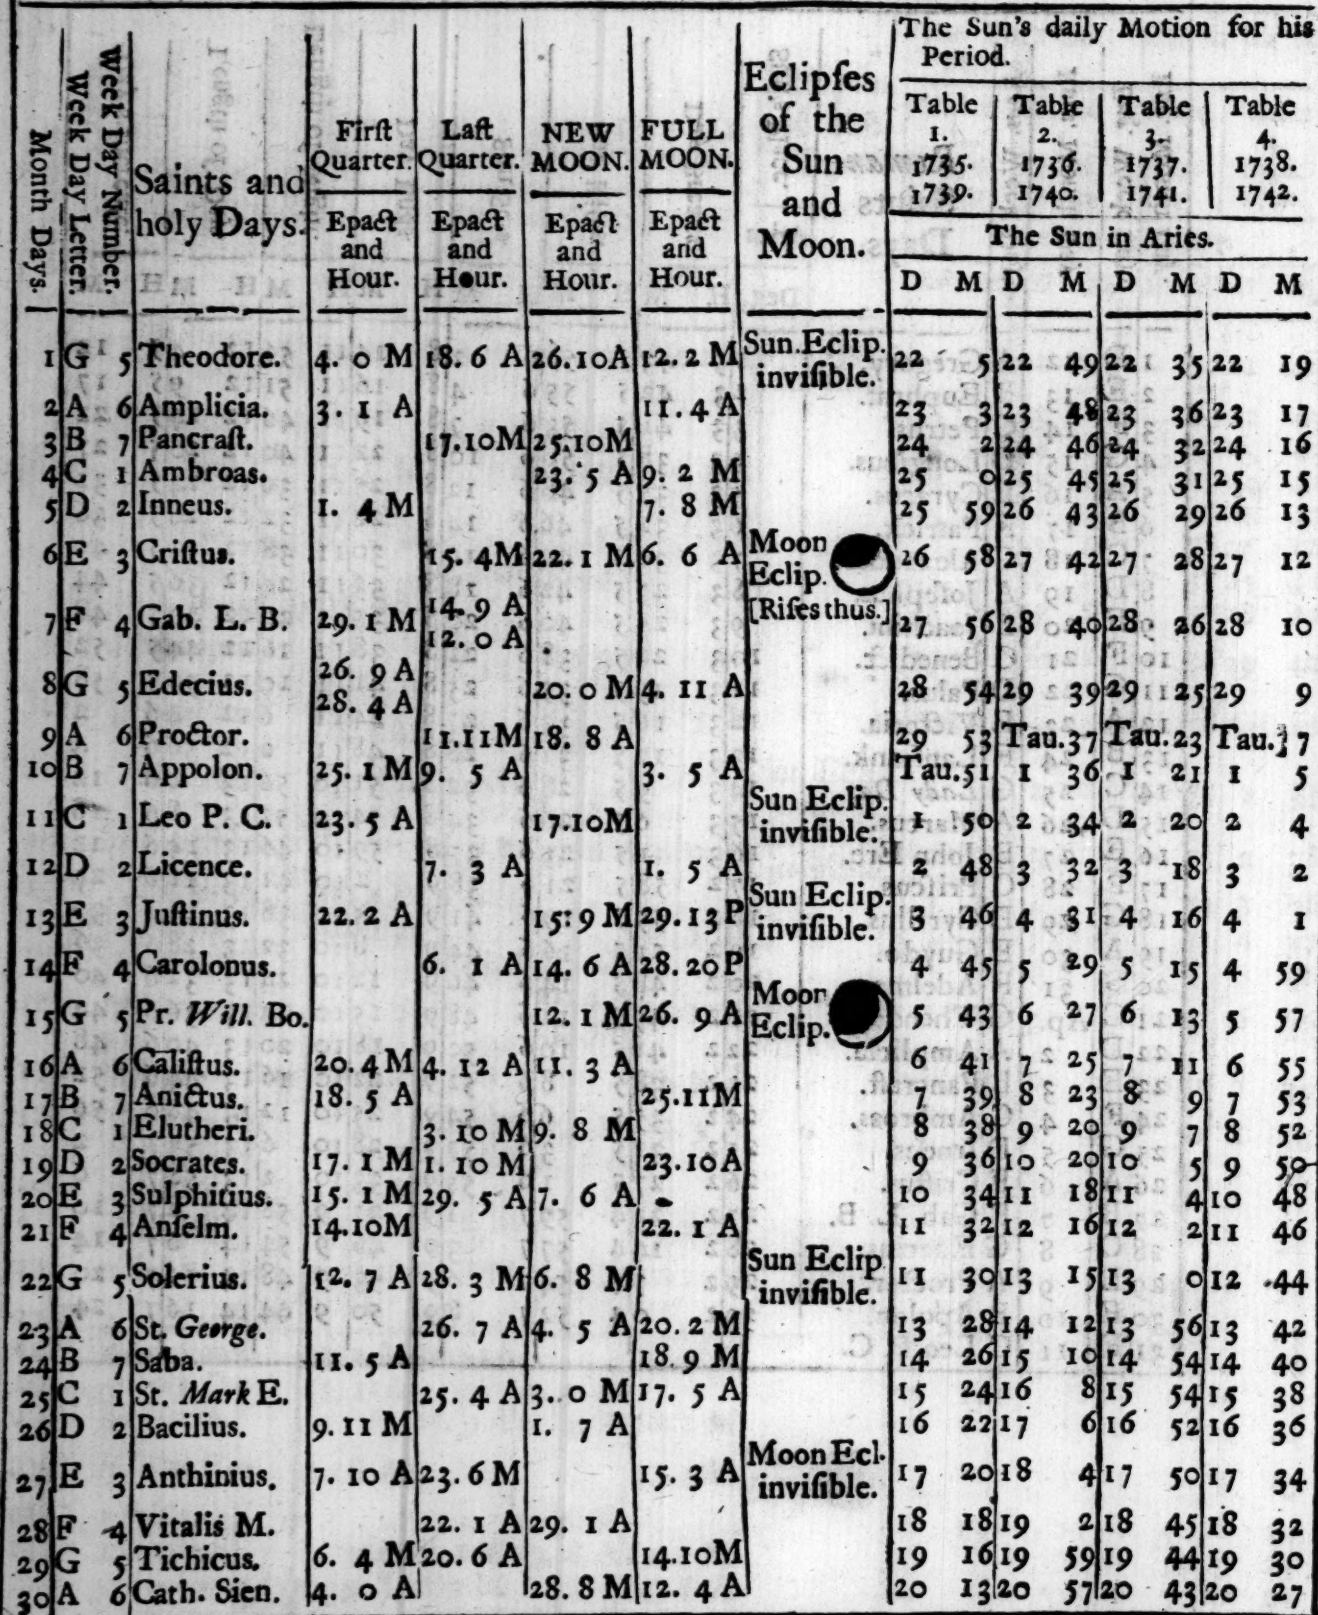 The Sun's daily Motion for his
Period.
Month Days.
Week Day Letter.
Week Day Number.
Saints and
holy Days.
First
Quarter.
Epact
and
Hour.
Last
Quarter.
Epact
and
Hour.
NEW
MOON.
Epact
and
Hour.
FULL
MOON.
Epact
and
Hour.
Eclipſes
of the
Sun
and
Moon.
Table 1. 1735. 1739.
Table 2. 1736. 1740.
Table 3. 1737. 1741.
Table 4. 1738. 1742.
The Sun in Aries.
D M D M D M D M
1 G 5 Theodore. 4. 0 M 18. 6 A 26.10A 12. 2 M Sun.Eclip. inviſible. 22 5 22 49 22 35 22 19
2 A 6 Amplicia. 3. 1 A 11. 4 A 23 3 23 48 23 36 23 17
3 B 7 Pancraſt. 17.10M 25.10M 24 2 24 46 24 32 24 16
4 C 1 Ambroas. 23. 5 A 9. 2 M 25 0 25 45 25 31 25 15
5 D 2 Inneus. 1. 4 M 7. 8 M 25 59 26 43 26 29 26 13
6 E 3 Criſtus. 15. 4M 22. 1 M 6. 6 A Moon Eclip. [Riſes thus.] 26 58 27 42 27 28 27 12
7 F 4 Gab. L. B. 29. 1 M 14. 9 A 12. 0 A 27 56 28 40 28 26 28 10
8 G 5 Edecius. 26. 9 A 28. 4 A 20. 0 M 4. 11 A 28 54 29 39 29 25 29 9
9 A 6 Proctor. 11.11M 18. 8 A 29 53 Tau. 37 Tau. 23 Tau. 7
10 B 7 Appolon. 25. 1 M 9. 5 A 3. 5 A Tau. 51 1 36 1 21 1 5
11 C 1 Leo P. C. 23. 5 A 17.10M Sun Eclip. inviſible. 1 50 2 34 2 20 2 4
12 D 2 Licence. 7. 3 A 1. 5 A 2 48 3 32 3 18 3 2
13 E 3 Juſtinus. 22. 2 A 15. 9 M 29.13 P Sun Eclip. inviſible. 3 46 4 31 4 16 4 1
14 F 4 Carolonus. 6. 1 A 14. 6 A 28.20P 4 45 5 29 5 15 4 59
15 G 5 Pr. Will. Bo. 12. 1 M 26. 9 A Moon Eclip. 5 43 6 27 6 13 5 57
16 A 6 Caliſtus. 20. 4 M 4. 12 A 11. 3 A 6 41 7 25 7 11 6 55
17 B 7 Anictus. 18. 5 A 25.11M 7 39 8 23 8 9 7 53
18 C 1 Elutheri. 3. 10 M 9. 8 M 8 38 9 20 9 7 8 52
19 D 2 Socrates. 17. 1 M 1. 10 M 23.10A 9 36 10 20 10 5 9 50
20 E 3 Sulphitius. 15. 1 M 29. 5 A 7. 6 A 10 34 11 18 11 4 10 48
21 F 4 Anſelm. 14.10M 22. 1 A 11 32 12 16 12 2 11 46
22 G 5 Solerius. 12. 7 A 28. 3 M 6. 8 M Sun Eclip inviſible. 11 30 13 15 13 0 12 44
23 A 6 St. George. 26. 7 A 4. 5 A 20. 2 M 13 28 14 12 13 56 13 42
24 B 7 Saba. 11. 5 A 18. 9 M 14 26 15 10 14 54 14 40
25 C 1 St. Mark E. 25. 4 A 3. 0 M 17. 5 A 15 24 16 8 15 54 15 38
26 D 2 Bacilius. 9. 11 M 1. 7 A 16 22 17 6 16 52 16 36
27 E 3 Anthinius. 7. 10 A 23. 6 M 15. 3 A Moon Ecl. inviſible. 17 20 18 4 17 50 17 34
28 F 4 Vitalis M. 22. 1 A 29. 1 A 18 18 19 2 18 45 18 32
29 G 5 Tichicus. 6. 4 M 20. 6 A 14.10M 19 16 19 59 19 44 19 30
30 A 6 Cath. Sien. 4. 0 A 28. 8 M 12. 4 A 20 13 20 57 20 43 20 27